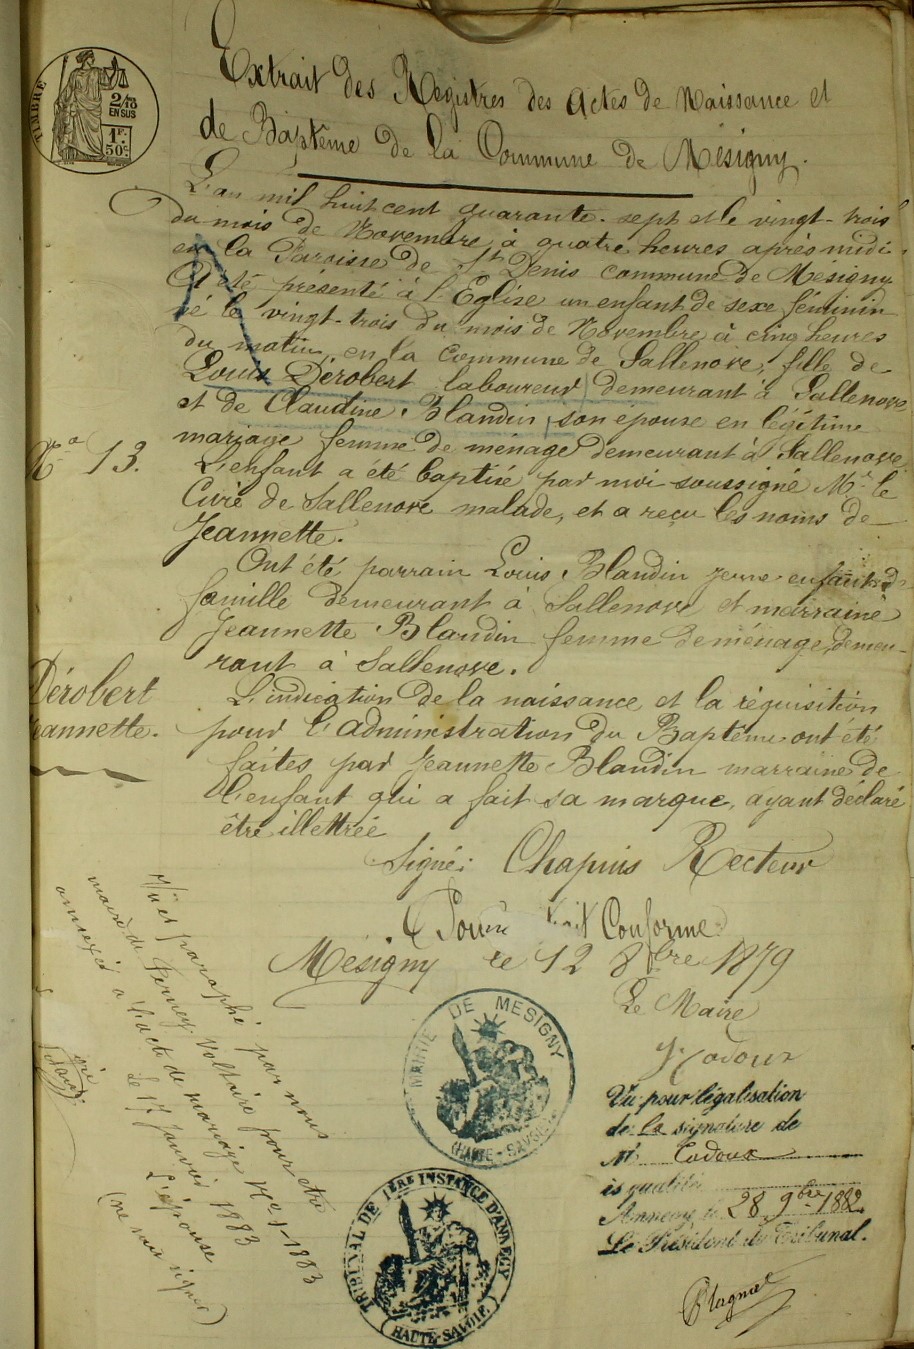 TIMBRE
2/10
EN SUS
1F.
50c
Extrait des Registres des actes de Naissance et
de Baptême de la Commune de Mésigny.
L'an mil huit cent quarante-sept et le vingt-trois
du mois de Novembre, à quatre heures après midi
en la Paroisse de St Denis commune de Mesigny
a été présenté à l'Eglise un enfant de sexe féminin
né le vingt-trois du mois de Novembre à cinq heures
du matin, en la commune de Sallenove, fille de
Louis Dérobert laboureur demeurant à Sallenove
et de Claudine Blandin, son epouse en légitime
mariage femme de ménage demeurant à Sallenove
No 13.
L'enfant a été baptisé par moi soussigné Mr le
Curé de Sallenove malade, et a reçu les noms de
Jeannette.
Ont été parrain Louis Blandin jeune enfant de
famille demeurant à Sallenove et marraine
Jeannette Blandin femme de ménage demeu-
rant à Sallenove.
Dérobert
Jeannette.
L'indication de la naissance et la réquisition
pour l'administration du Baptême ont été
faites par Jeannette Blandin marraine de
l'enfant qui a fait sa marque, ayant déclaré
être illettrée
Signé: Chapuis Recteur
Pour Conforme
Mésigny le 12 8bre 1879
Le Maire
Codoux
MAIRIE DE MESIGNY
HAUTE-SAVOIE
Vu pour légalisation
de la signature de
Mr Codoux
is qualité
Annecy, le 28 9bre 1882
Le Président du Tribunal.
TRIBUNAL DE 1ÈRE INSTANCE D'ANNECY
(HAUTE-SAVOIE)
Vu et paraphé par nous
maire de Ferney-Voltaire pour être
annexé à l'acte de mariage No 1-1883
le 17 Janvier 1883
L'épouse
(ne sait signer)